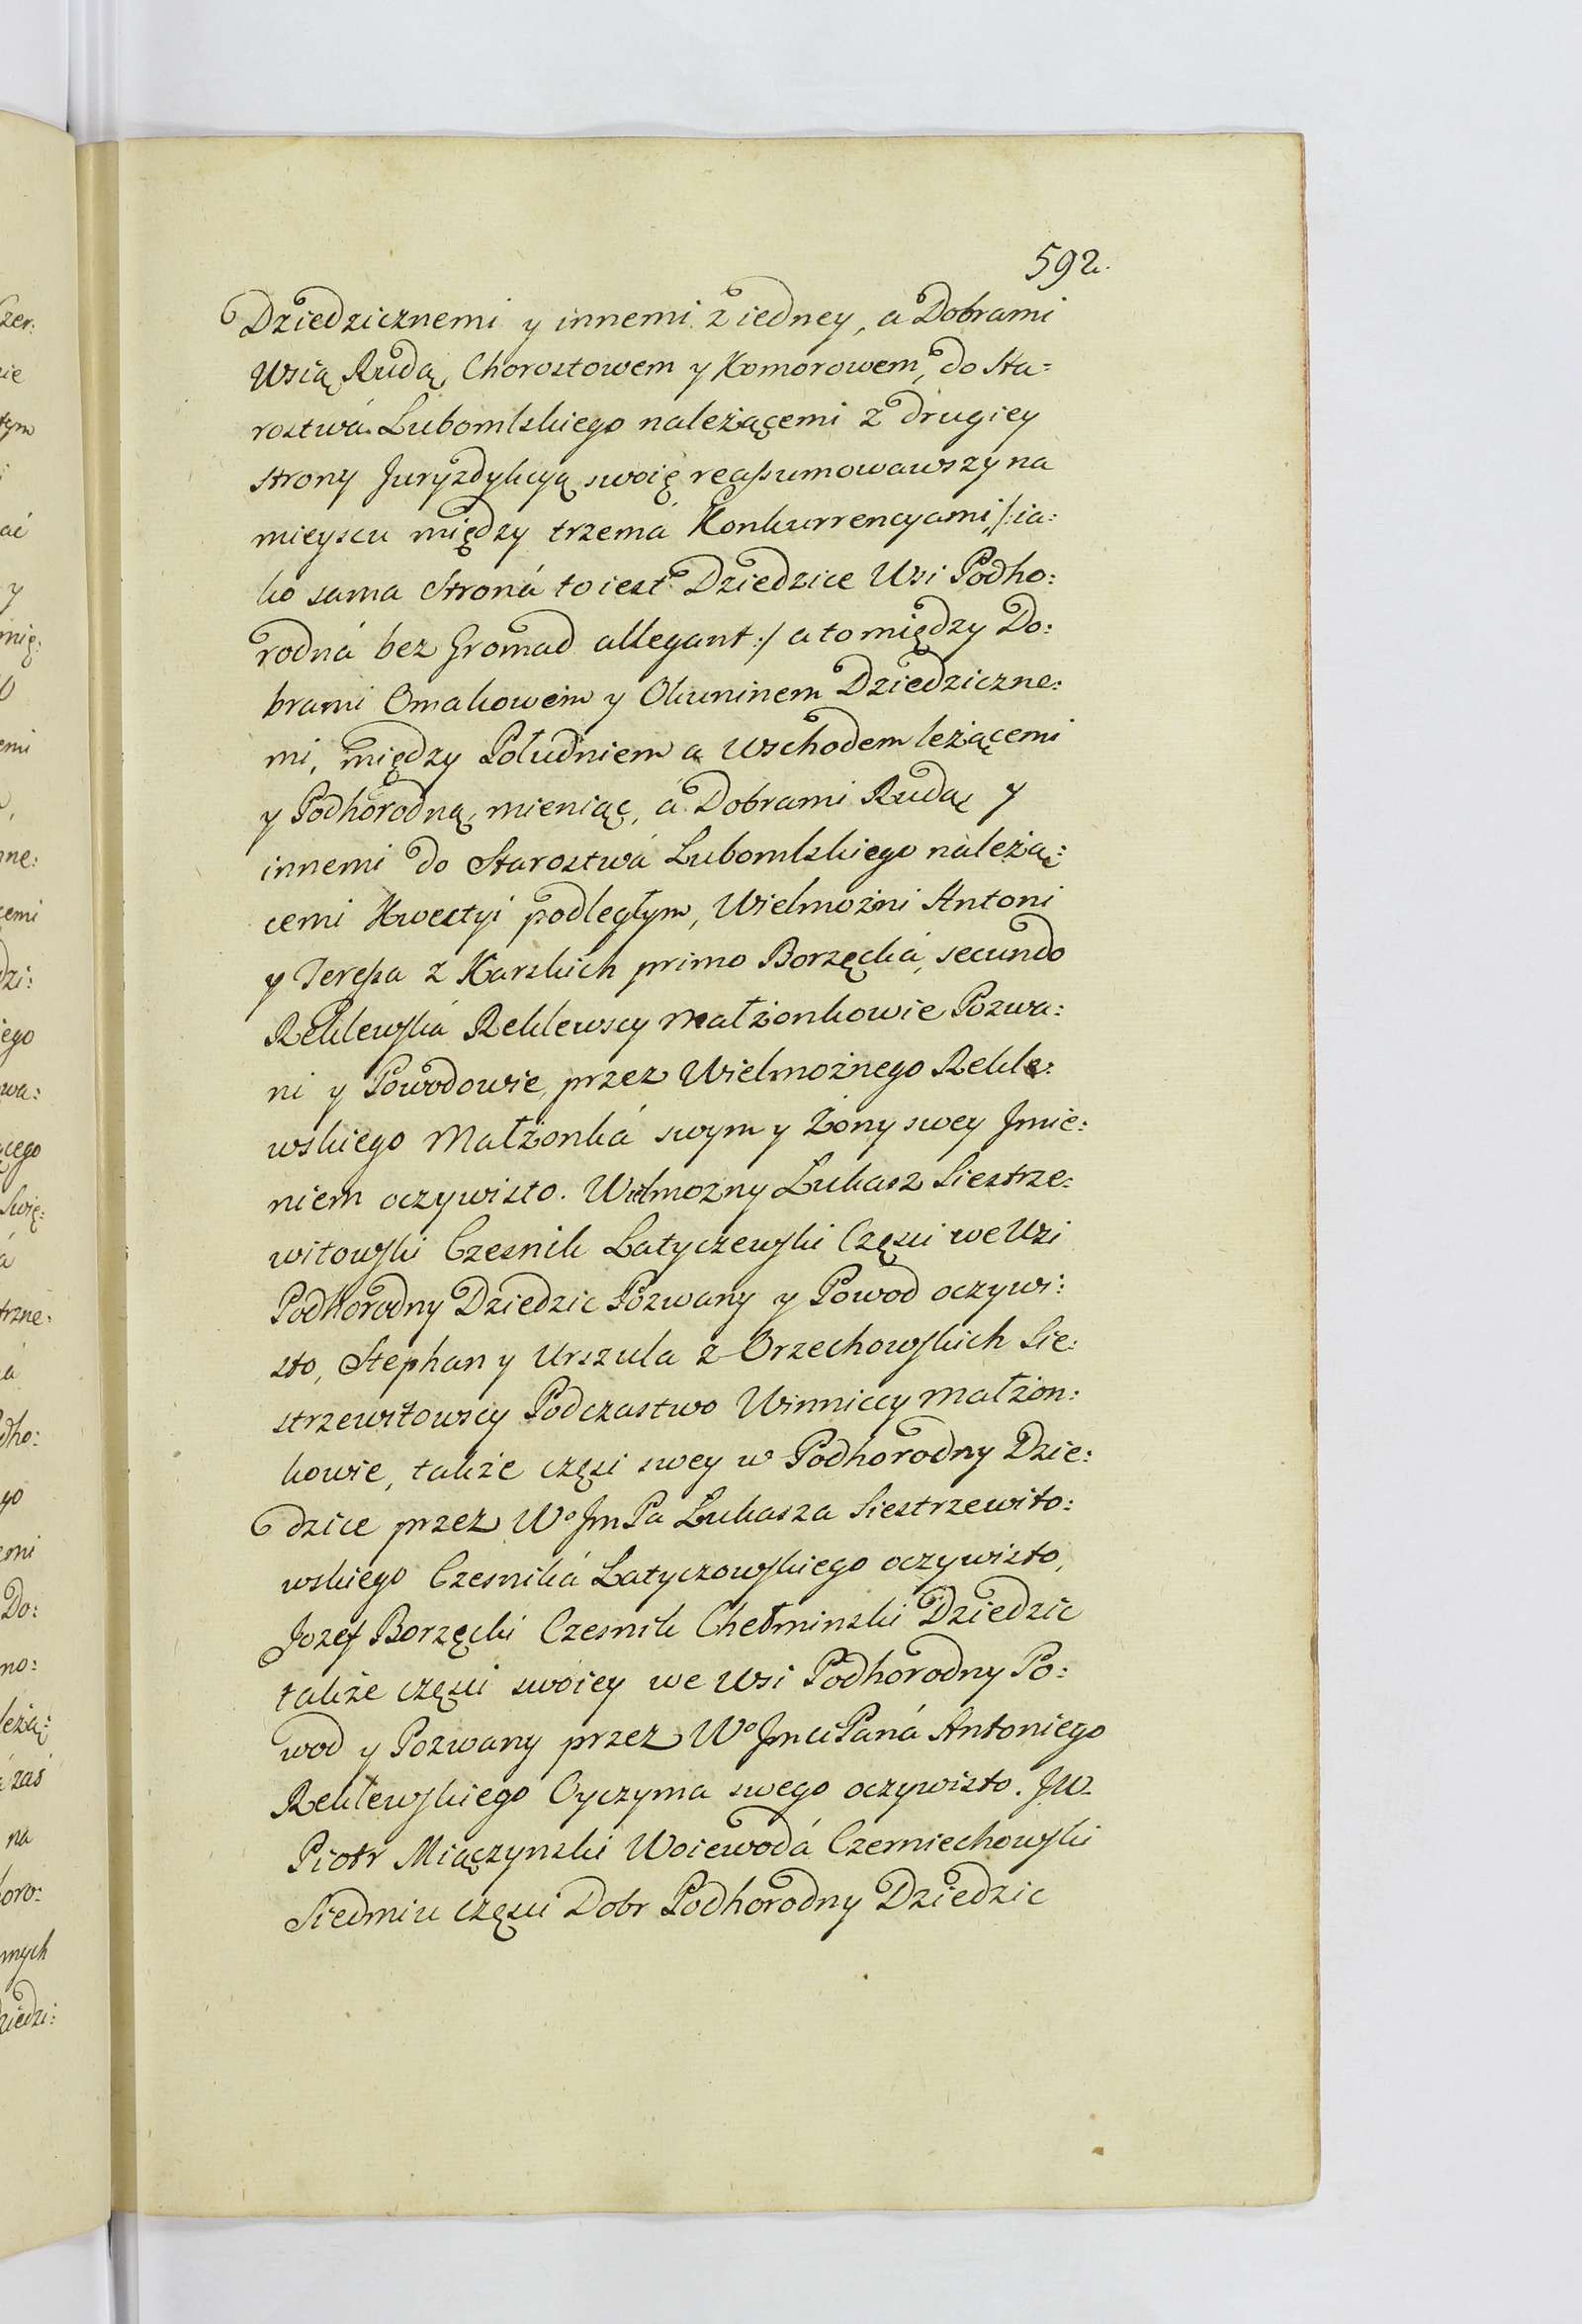 592.
Dziedzicznemi y innemi z iedney, a Dobrami
Wsią Rudą, Chorostowem y Komorowem, do Sta:
rostwá Lubomlskiego należącemi z drugiey
strony Juryzdykcyą swoię reassumowawszy na
mieyscu między trzemá Konkurrencyami /: ia:
ko sama Stroná to iest Dziedzice Wsi Podho:
rodná bez Gromad allegant :/ a to między Do:
brami Omakowem y Okuninem Dziedziczne:
mi, między Południem a Wschodem leżącemi
y Podhorodną, mieniąc, á Dobrami Rudą y
innemi do Starostwá Lubomlskiego należą:
cemi Kwestyi podległym, Wielmożni Antoni
y Teressa z Karskich primo Borzęcká, secundo
Reklewská Reklewscy Małżonkowie Pozwa:
ni y Powodowie, przez Wielmożnego Rekle:
wskiego Małżonká swym y Żony swey Jmie:
niem oczywisto. Wielmozny Lukasz Siestrze:
witowski Czesnik Latyczewski Części we Wsi
Podhorodny Dziedzic Pozwany y Powod oczywi:
sto, Stephan y Urszula z Orzechowskich Sie:
strzewitowscy Podczastwo Winniccy Małżon:
kowie, także częsi swey w Podhorodny Dzie:
dzice przez Wo Jm Pa Lukasza Siestrzewito:
wskiego Czesniká Latyczowskiego oczywisto,
Jozef Borzęcki Czesnik Chełminski Dziedzic
także części swoiey we Wsi Podhorodny Po:
wod y Pozwany przez Wo Jmci Paná Antoniego
Reklewskiego Oyczyma swego oczywisto. JW
Piotr Miączynski Woiewodá Czerniechowski
Siedmiu części Dobr Podhorodny Dziedzic
zer:
zie
tym
ać
y
mię:
emi
nne:
cemi
dzi:
iego
wa:
ącego
Swię:
trzne:
dho:
go
emi
Do:
no:
leżą:
zaś
na
horo:
mych
ziedzi: